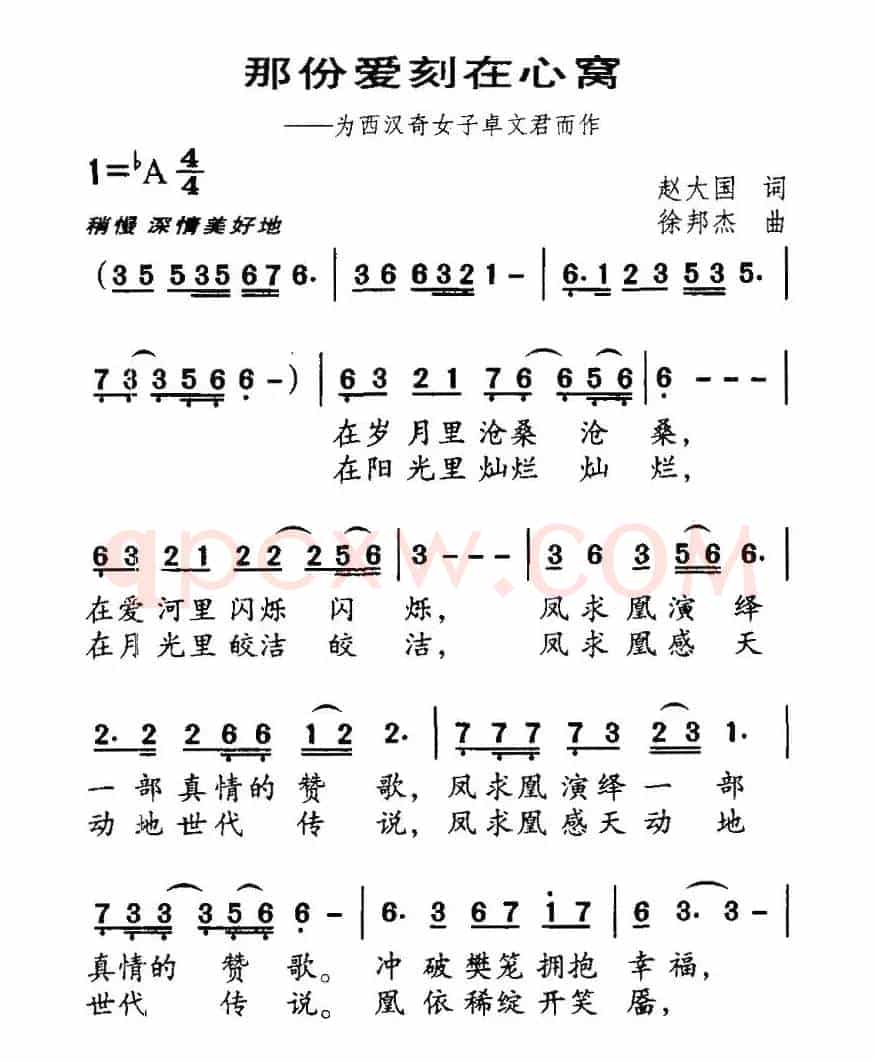 那份爱刻在心窝
——为西汉奇女子卓文君而作
1=♭A 4/4
赵大国 词
稍慢 深情美好地
徐邦杰 曲
(35 535 67 6. | 36 6321 - | 6.1 23 535 5. |
73 356 6 -) | 63 21 76 656 | 6 - - - |
在岁月里沧桑 沧 桑,
在阳光里灿烂 灿 烂,
63 21 22 256 | 3 - - - | 3 6 3 56 6.
在爱河里闪烁 闪 烁, 凤求凰演绎
在月光里皎洁 皎 洁, 凤求凰感天
2. 2 266 12 2. | 777 73 23 1. |
一部真情的赞 歌,凤求凰演绎一 部
动地世代 传 说,凤求凰感天动 地
733 356 6 - | 6. 3 67 17 | 6 3. 3 - |
真情的 赞 歌。冲 破樊笼拥抱 幸福,
世代 传 说。凰 依稀绽开笑 靥,
qpcxw.com